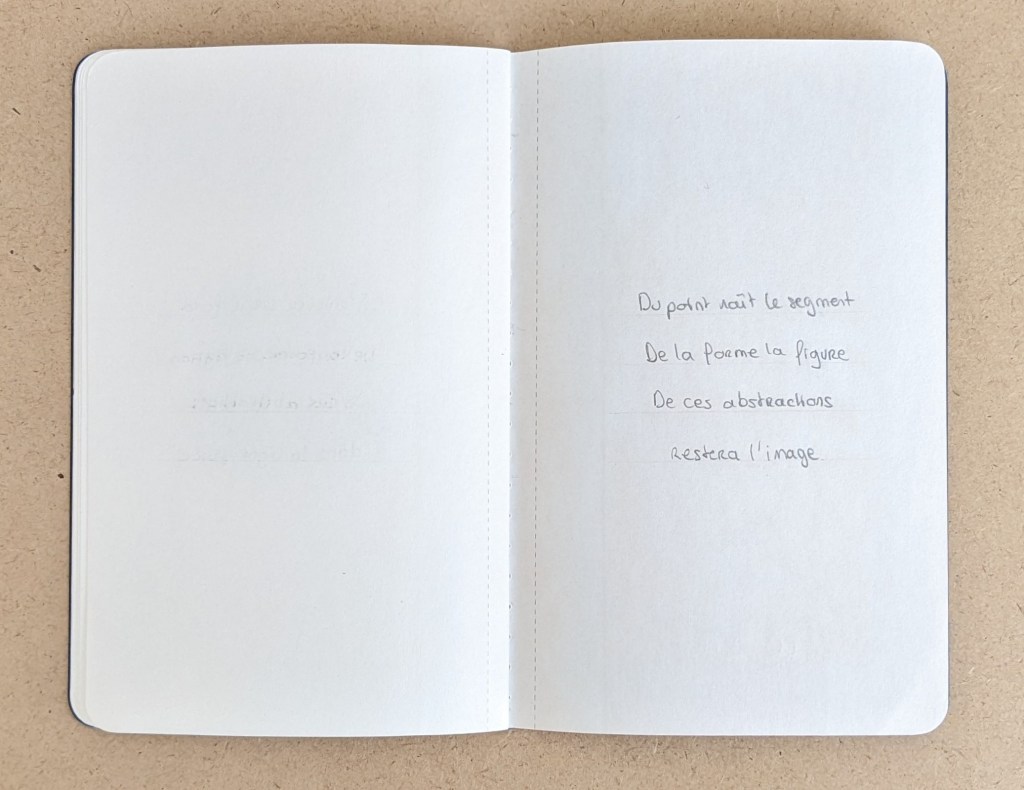 Du point naît le segment
De la forme la figure
De ces abstractions
restera l'image